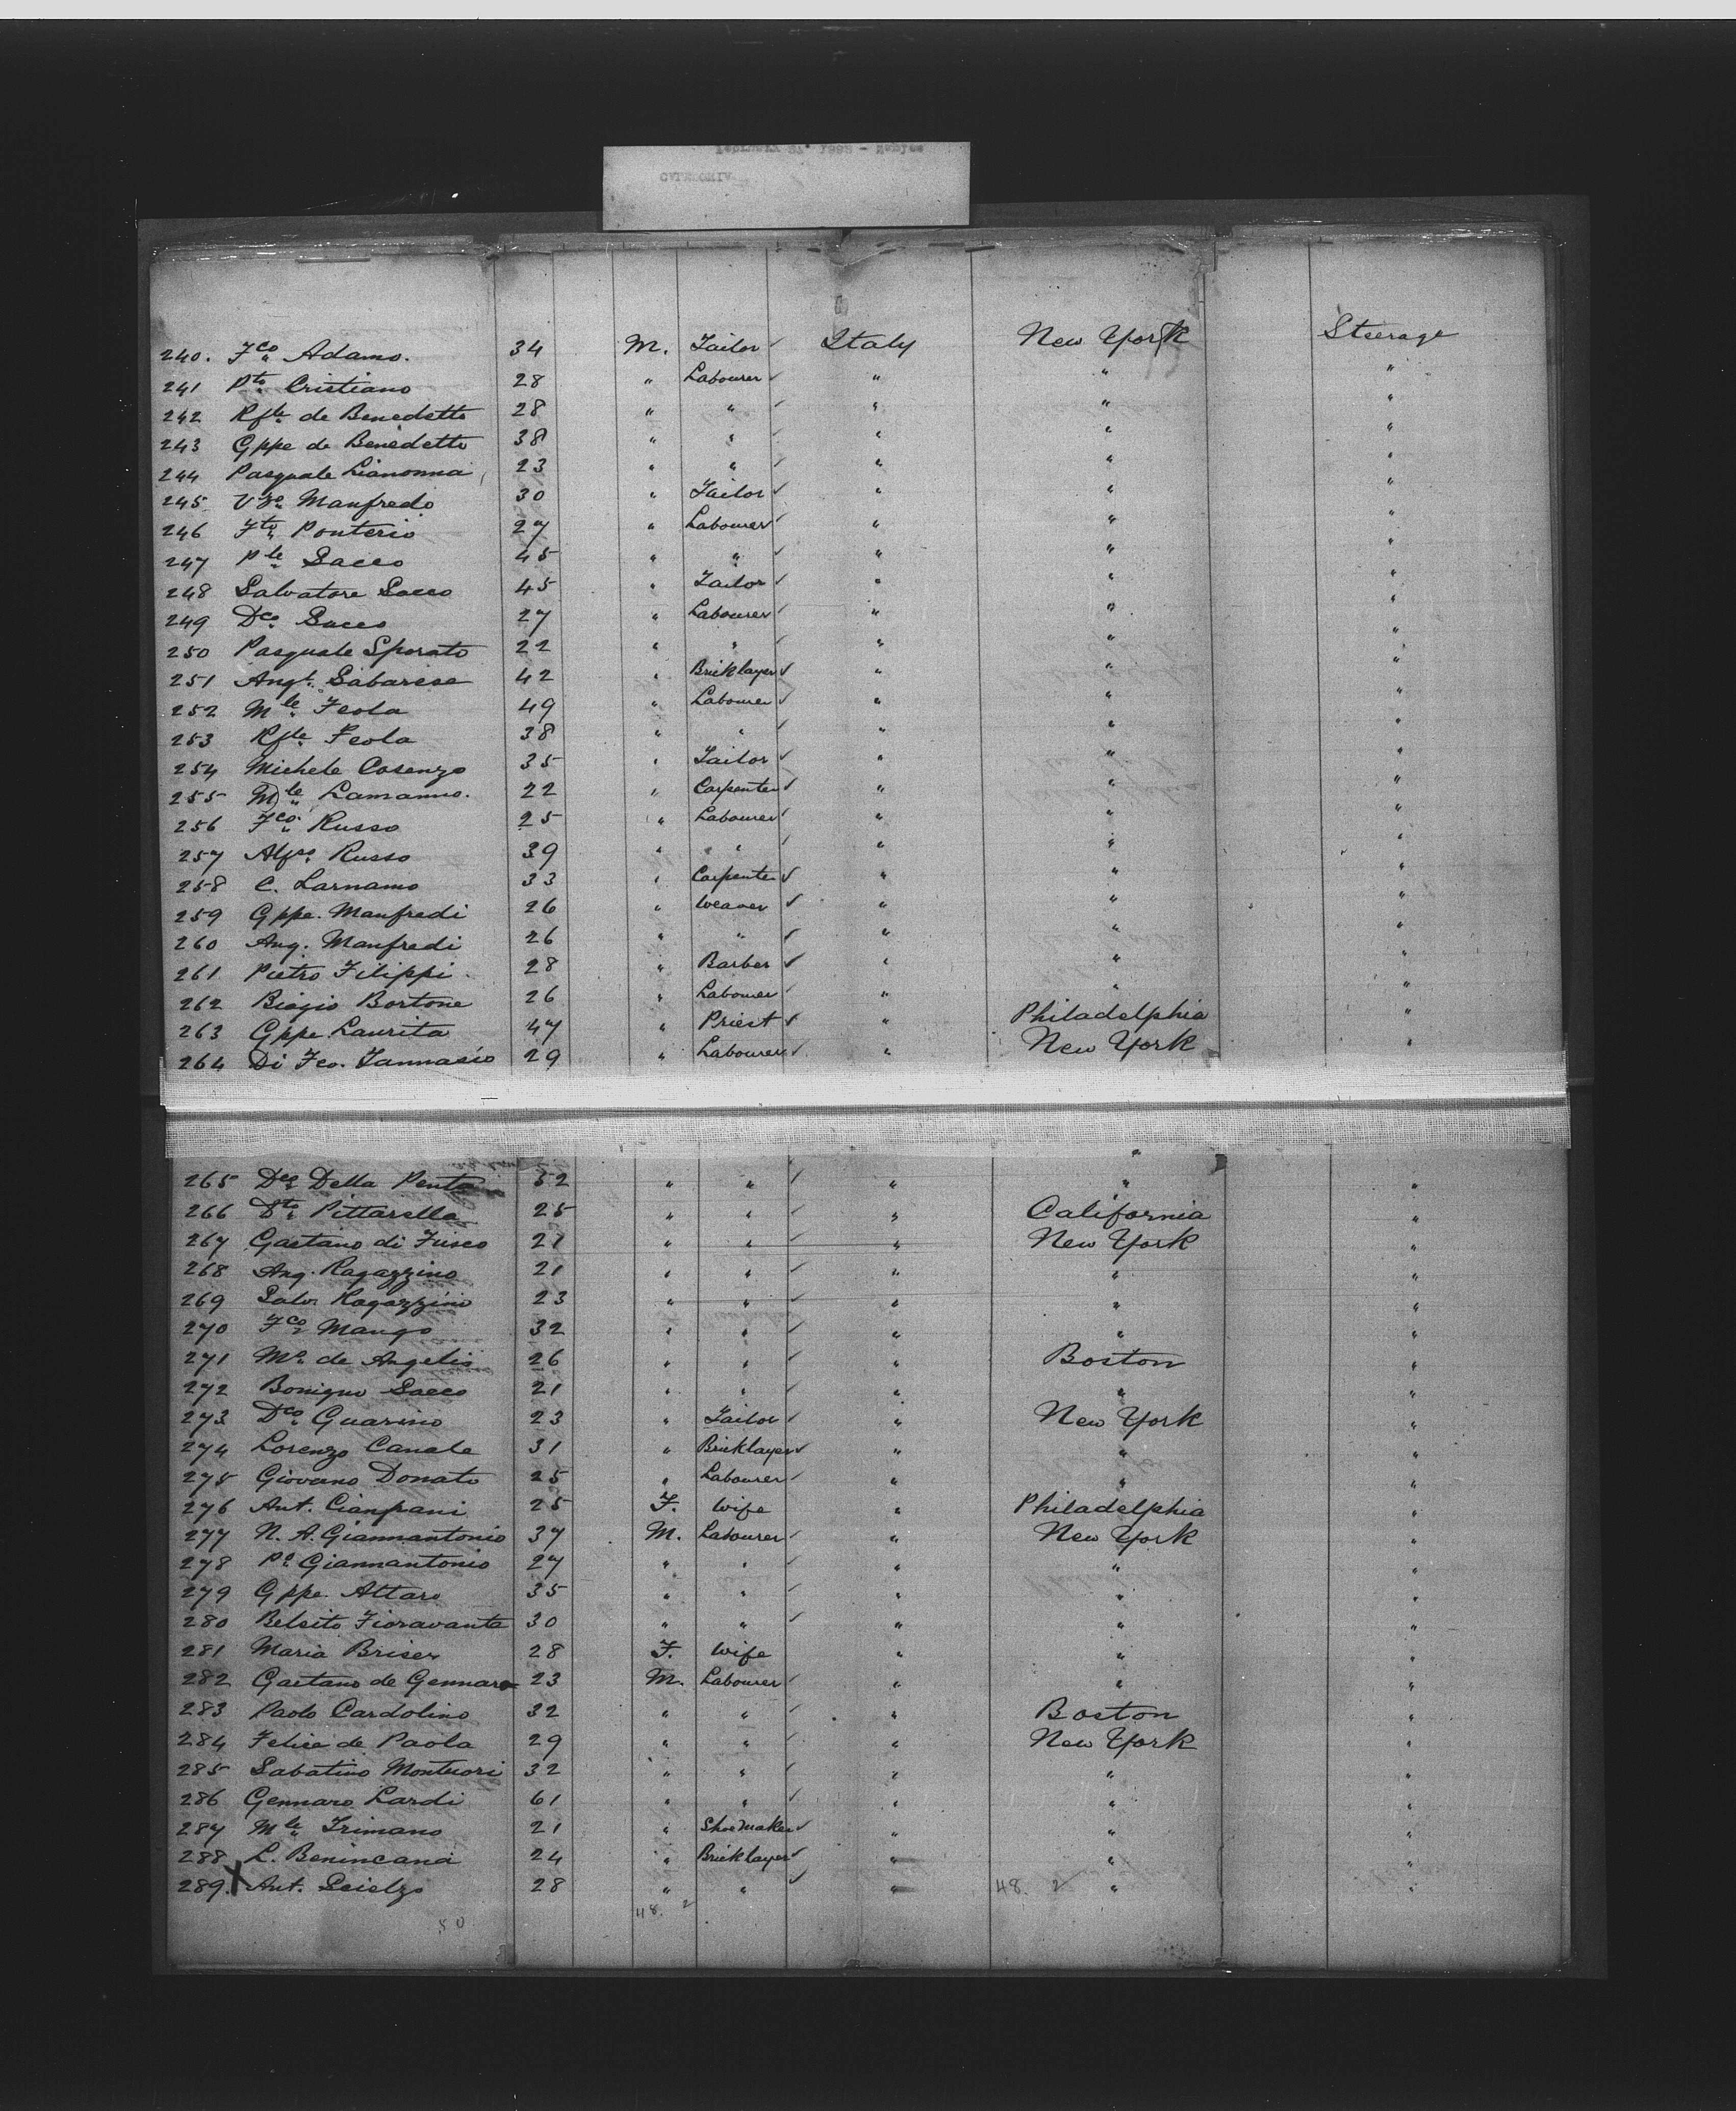 240. Fco Adamo. 34 M. Tailor ✓ Italy New York Steerage
241 Pto Cristiano 28 " Labourer ✓ " " "
242 Rfle de Benedetto 28 " " ✓ " " "
243 Gppe de Benedetto 38 " " ✓ " " "
244 Pasquale Lianonna 23 " " ✓ " " "
245 Vzo Manfredo 30 " Tailor ✓ " " "
246 Fto Ponterio 27 " Labourer ✓ " " "
247 Ple Sacco 45 " " ✓ " " "
248 Salvatore Sacco 45 " Tailor ✓ " " "
249 Dco Sacco 27 " Labourer ✓ " " "
250 Pasquale Sporato 22 " " ✓ " " "
251 Angt. Sabarese 42 " Bricklayer ✓ " " "
252 Mle Feola 49 " Labourer ✓ " " "
253 Rfle Feola 38 " " ✓ " " "
254 Michele Cosenzo 35 " Tailor ✓ " " "
255 Mle Lamanno. 22 " Carpenter ✓ " " "
256 Fco Russo 25 " Labourer ✓ " " "
257 Alfso Russo 39 " " ✓ " " "
258 C. Larnamo 33 " Carpenter ✓ " " "
259 Gppe. Manfredi 26 " Weaver ✓ " " "
260 Ang. Manfredi 26 " " ✓ " " "
261 Pietro Filippi 28 " Barber ✓ " " "
262 Biagio Bortone 26 " Labourer ✓ " " "
263 Gppe Laurita 47 " Priest ✓ " Philadelphia "
264 Di Fco. Iannasio 29 " Labourer ✓ " New York "
265 Dco Della Penta 52 " " ✓ " " "
266 Dto Pittarella 25 " " ✓ " California "
267 Gaetano di Fusco 21 " " ✓ " New York "
268 Ang. Ragazzino 21 " " ✓ " " "
269 Salv. Ragazzino 23 " " ✓ " " "
270 Fco Mango 32 " " ✓ " " "
271 Mo de Angelis 26 " " ✓ " Boston "
272 Bonigno Sacco 21 " " ✓ " " "
273 Dco Guarino 23 " Tailor ✓ " New York "
274 Lorenzo Canale 31 " Bricklayer ✓ " " "
275 Giovano Donato 25 " Labourer ✓ " " "
276 Ant. Cianfrani 25 F. Wife " Philadelphia "
277 N. A. Giannantonio 37 M. Labourer ✓ " New York "
278 Po Giannantonio 27 " " ✓ " " "
279 Gppe Altaro 35 " " ✓ " " "
280 Belsito Fioravante 30 " " ✓ " " "
281 Maria Briser 28 F. Wife " " "
282 Gaetano de Gennaro 23 M. Labourer ✓ " " "
283 Paolo Cardolino 32 " " ✓ " Boston "
284 Felice de Paola 29 " " ✓ " New York "
285 Sabatino Montuori 32 " " ✓ " " "
286 Gennaro Lardi 61 " " ✓ " " "
287 Mle Trimano 21 " Shoemaker ✓ " " "
288 L. Benincana 24 " Bricklayer ✓ " " "
289. X Ant. Scielzo 28 " " ✓ " 48. 2 " "
50 48. 2